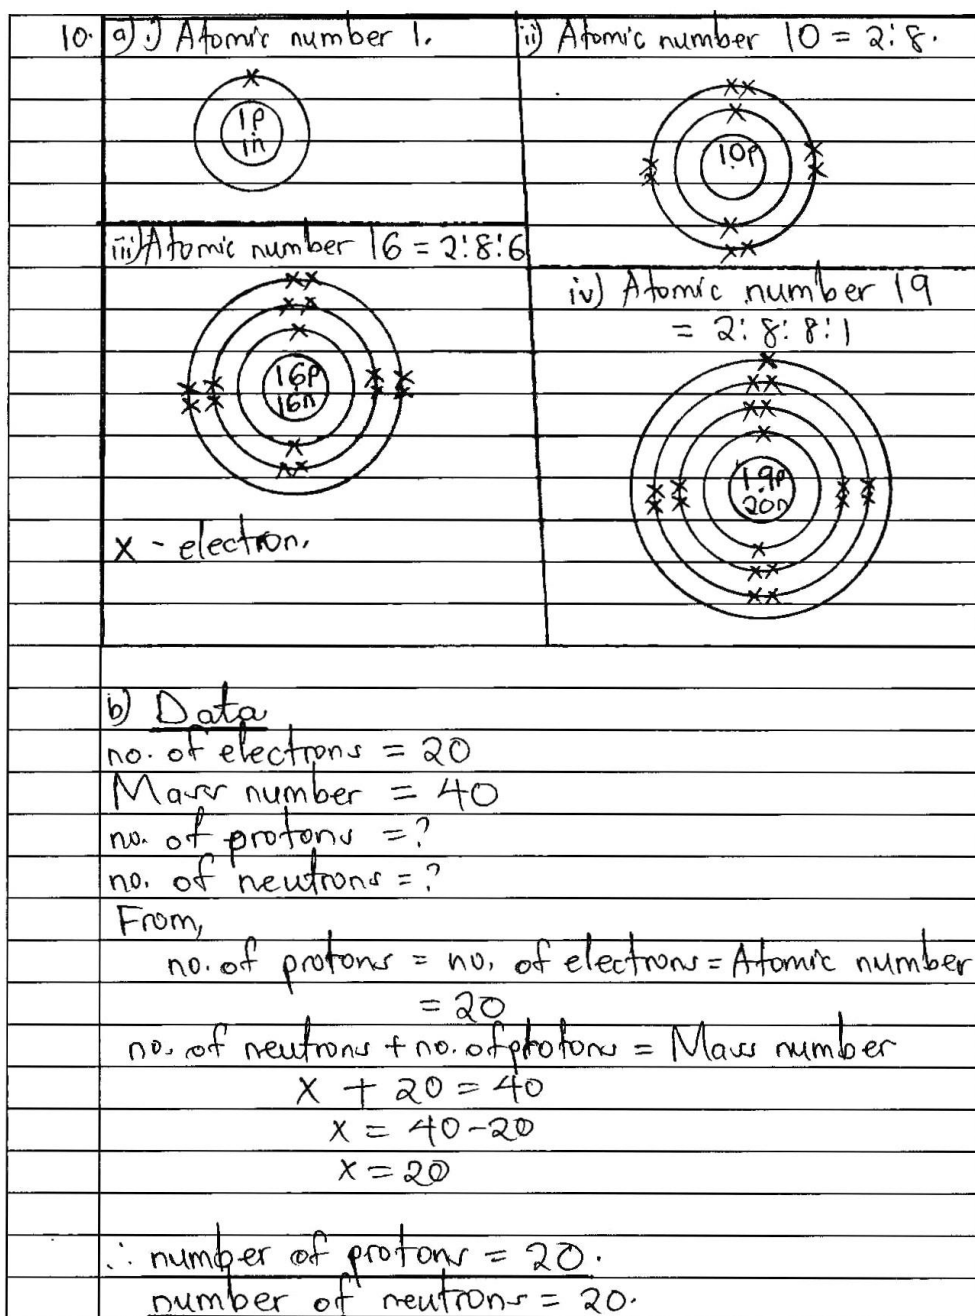 10. a) i) Atomic number 1.
1p
1n
ii) Atomic number 10 = 2:8.
10p
iii) Atomic number 16 = 2:8:6
16p
16n
x - electron.
iv) Atomic number 19
= 2:8:8:1
19p
20n
b) Data
no. of electrons = 20
Mass number = 40
no. of protons = ?
no. of neutrons = ?
From,
no. of protons = no. of electrons = Atomic number
= 20
no. of neutrons + no. of protons = Mass number
x + 20 = 40
x = 40 - 20
x = 20
∴ number of protons = 20.
number of neutrons = 20.